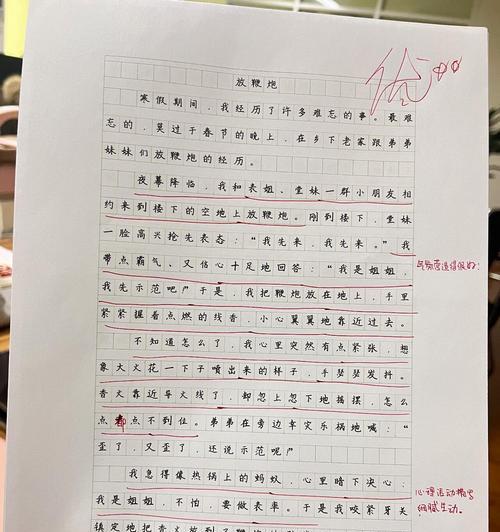 优
放鞭炮
寒假期间,我经历了许多难忘的事。最难
忘的,莫过于春节的晚上,在乡下老家跟弟弟
妹妹们放鞭炮的经历。
夜幕降临,我和表姐、堂妹一群小朋友相
约来到楼下的空地上放鞭炮。刚到楼下,堂妹
一脸高兴抢先表态:“我先来,我先来。”我
带点霸气、又信心十足地回答:“我是姐姐,
我先示范吧!”于是,我把鞭炮放在地上,手里
紧紧握着点燃的线香,小心翼翼地靠近过去。
气氛营造得很好!
不知道怎么了,我心里突然有点紧张,想
象大火花一下子喷出来的样子,手瑟瑟发抖。
香火靠近导火线了,却忽上忽下地摇摆,怎么
点都点不到位。弟弟在旁边幸灾乐祸地喊:“
歪了,又歪了,还说示范呢!”
我急得像热锅上的蚂蚁,心里暗下决心:
我是姐姐,不怕,要做表率。于是我咬紧牙关
心理活动描写
细腻生动。
镇定地把香火放到了